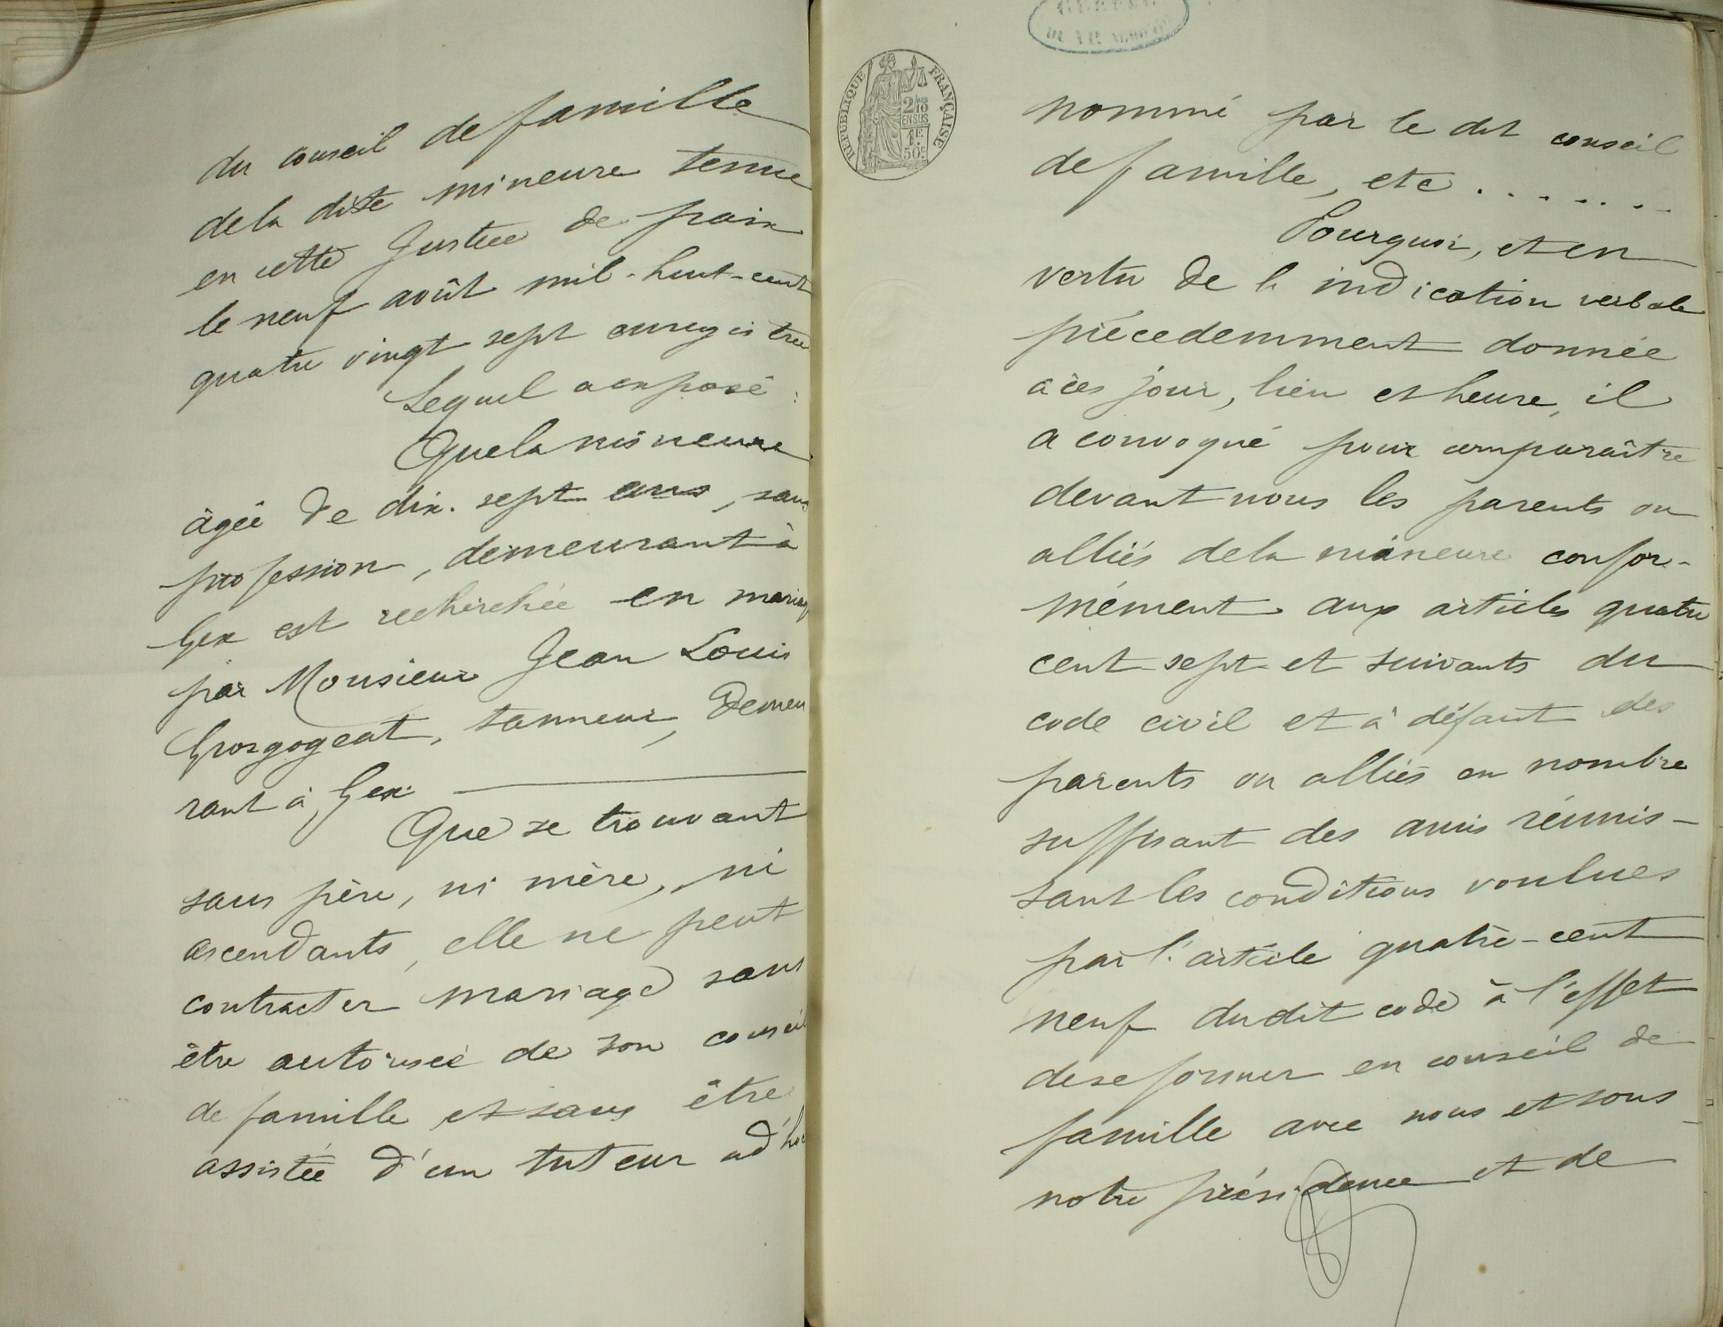 du conseil de famille
de la dite mineure tenue
en cette Justice de paix
le neuf août mil-huit-cent
quatre vingt sept enregistrée
Lequel a exposé :
Que la mineure
âgée de dix-sept ans, sans
profession, demeurant à
Gex est recherchée en mariag
par Monsieur Jean Louis
Grosgogeat, tanneur, demeu
rant à Gex
Que se trouvant
sans père, ni mère, ni
ascendants, elle ne peut
contracter mariage sans
être autorisée de son conseil
de famille et sans être
assistée d'un tuteur ad'hoc
RÉPUBLIQUE FRANÇAISE
nommé par le dit conseil
de famille, etc . . . . . . .
Pourquoi, et en
vertu de l'indication verbale
précedemment donnée
à ces jour, lieu et heure, il
a convoqué pour comparaître
devant nous les parents ou
alliés de la mineure confor-
mément aux articles quatre
cent sept et suivants du
code civil et à défaut des
parents ou alliés en nombre
suffisant des amis réunis-
sant les conditions voulues
par l'article quatre-cent
neuf dudit code à l'effet
de se former en conseil de
famille avec nous et sous
notre présidence et de